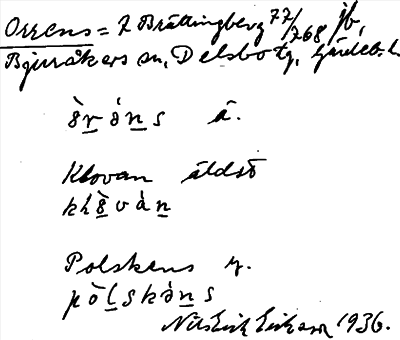 Orrens = 2 Brättingberg 77/768 jb,
Bjuråkers sn, Delsbo tg, Gävleb. l.
ò̱r ə́ṉs ä.
Klovan äldst
klò̱váṉ
Polskens y.
pòḻskə̀ṉs
Nils Erik Erikson 1936.